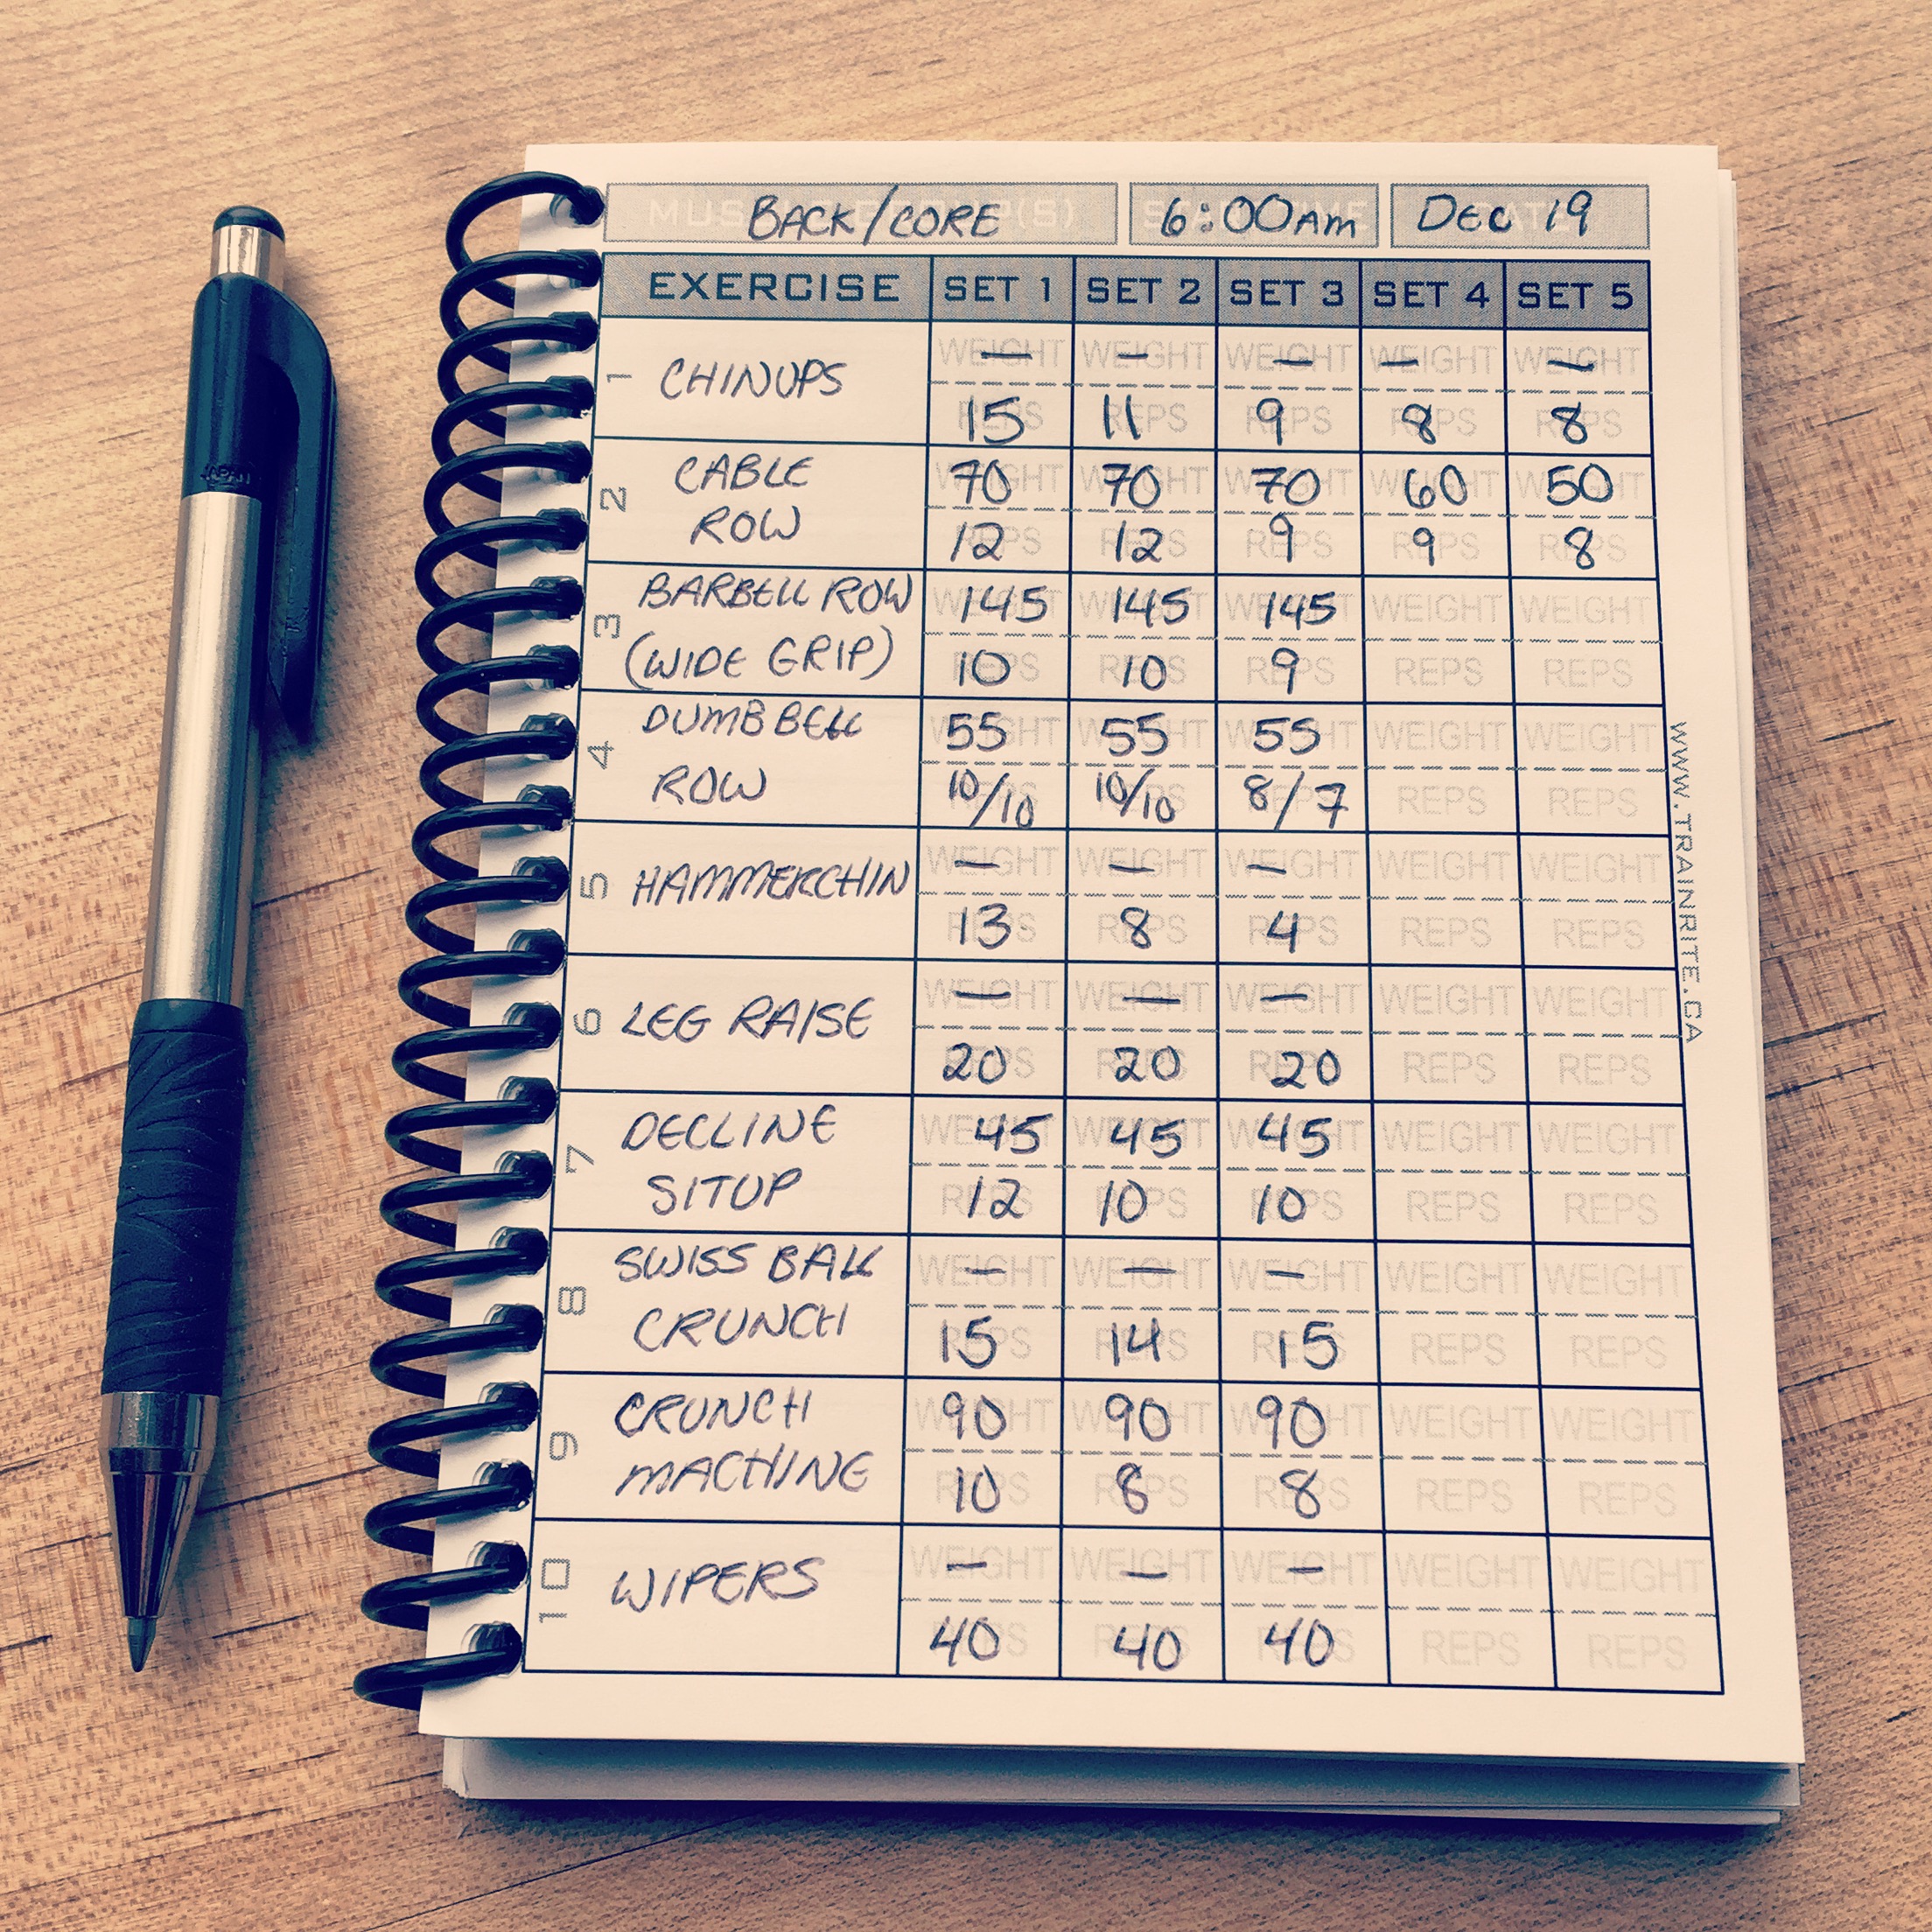 BACK/CORE 6:00AM DEC 19
EXERCISE SET 1 SET 2 SET 3 SET 4 SET 5
1 CHINUPS WEIGHT – WEIGHT – WEIGHT – WEIGHT – WEIGHT –
REPS 15 REPS 11 REPS 9 REPS 8 REPS 8
2 CABLE WEIGHT 70 WEIGHT 70 WEIGHT 70 WEIGHT 60 WEIGHT 50
ROW REPS 12 REPS 12 REPS 9 REPS 9 REPS 8
3 BARBELL ROW WEIGHT 145 WEIGHT 145 WEIGHT 145 WEIGHT WEIGHT
(WIDE GRIP) REPS 10 REPS 10 REPS 9 REPS REPS
4 DUMBBELL WEIGHT 55 WEIGHT 55 WEIGHT 55 WEIGHT WEIGHT
ROW REPS 10/10 REPS 10/10 REPS 8/7 REPS REPS
5 HAMMERCHIN WEIGHT – WEIGHT – WEIGHT – WEIGHT WEIGHT
REPS 13 REPS 8 REPS 4 REPS REPS
6 LEG RAISE WEIGHT – WEIGHT – WEIGHT – WEIGHT WEIGHT
REPS 20 REPS 20 REPS 20 REPS REPS
7 DECLINE WEIGHT 45 WEIGHT 45 WEIGHT 45 WEIGHT WEIGHT
SITUP REPS 12 REPS 10 REPS 10 REPS REPS
8 SWISS BALL WEIGHT – WEIGHT – WEIGHT – WEIGHT WEIGHT
CRUNCH REPS 15 REPS 14 REPS 15 REPS REPS
9 CRUNCH WEIGHT 90 WEIGHT 90 WEIGHT 90 WEIGHT WEIGHT
MACHINE REPS 10 REPS 8 REPS 8 REPS REPS
10 WIPERS WEIGHT – WEIGHT – WEIGHT – WEIGHT WEIGHT
REPS 40 REPS 40 REPS 40 REPS REPS
WWW.TRAINRITE.CA
JAPAN